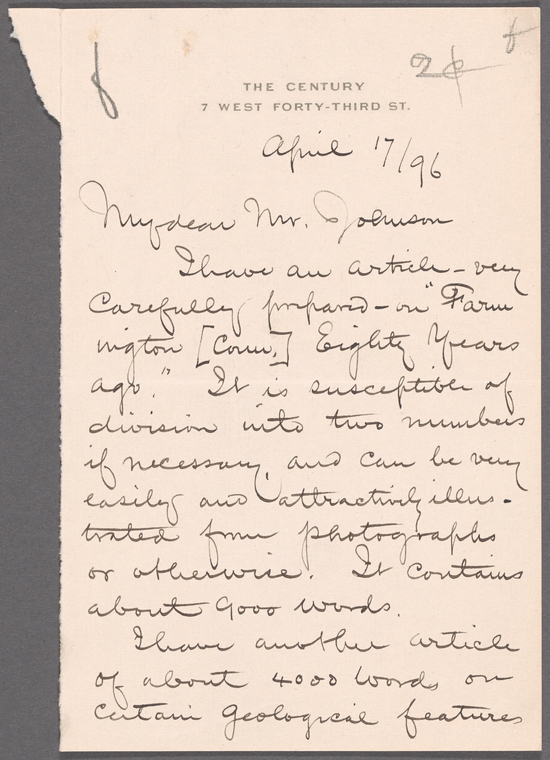 2¢
THE CENTURY
7 WEST FORTY-THIRD ST.
April 17/96
My dear Mr. Johnson
I have an article – very
carefully prepared – on "Farm
ington [Conn.] Eighty Years
ago." It is susceptible of
division into two numbers
if necessary, and can be very
easily and attractively illus-
trated from photographs
or otherwise. It contains
about 9000 words.
I have another article
of about 4000 words on
certain geological features